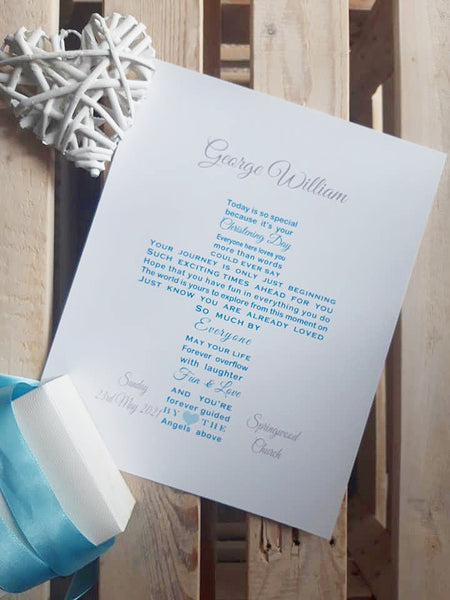 George William
Today is so special
because it's your
Christening Day
Everyone here loves you
more than words
COULD EVER SAY
YOUR JOURNEY IS ONLY JUST BEGINNING
SUCH EXCITING TIMES AHEAD FOR YOU
Hope that you have fun in everything you do
The world is yours to explore from this moment on
JUST KNOW YOU ARE ALREADY LOVED
SO MUCH BY
Everyone
MAY YOUR LIFE
Forever overflow
with laughter
Fun & Love
AND YOU'RE
forever guided
BY THE
Angels above
Sunday
23rd May 2021
Springwood
Church